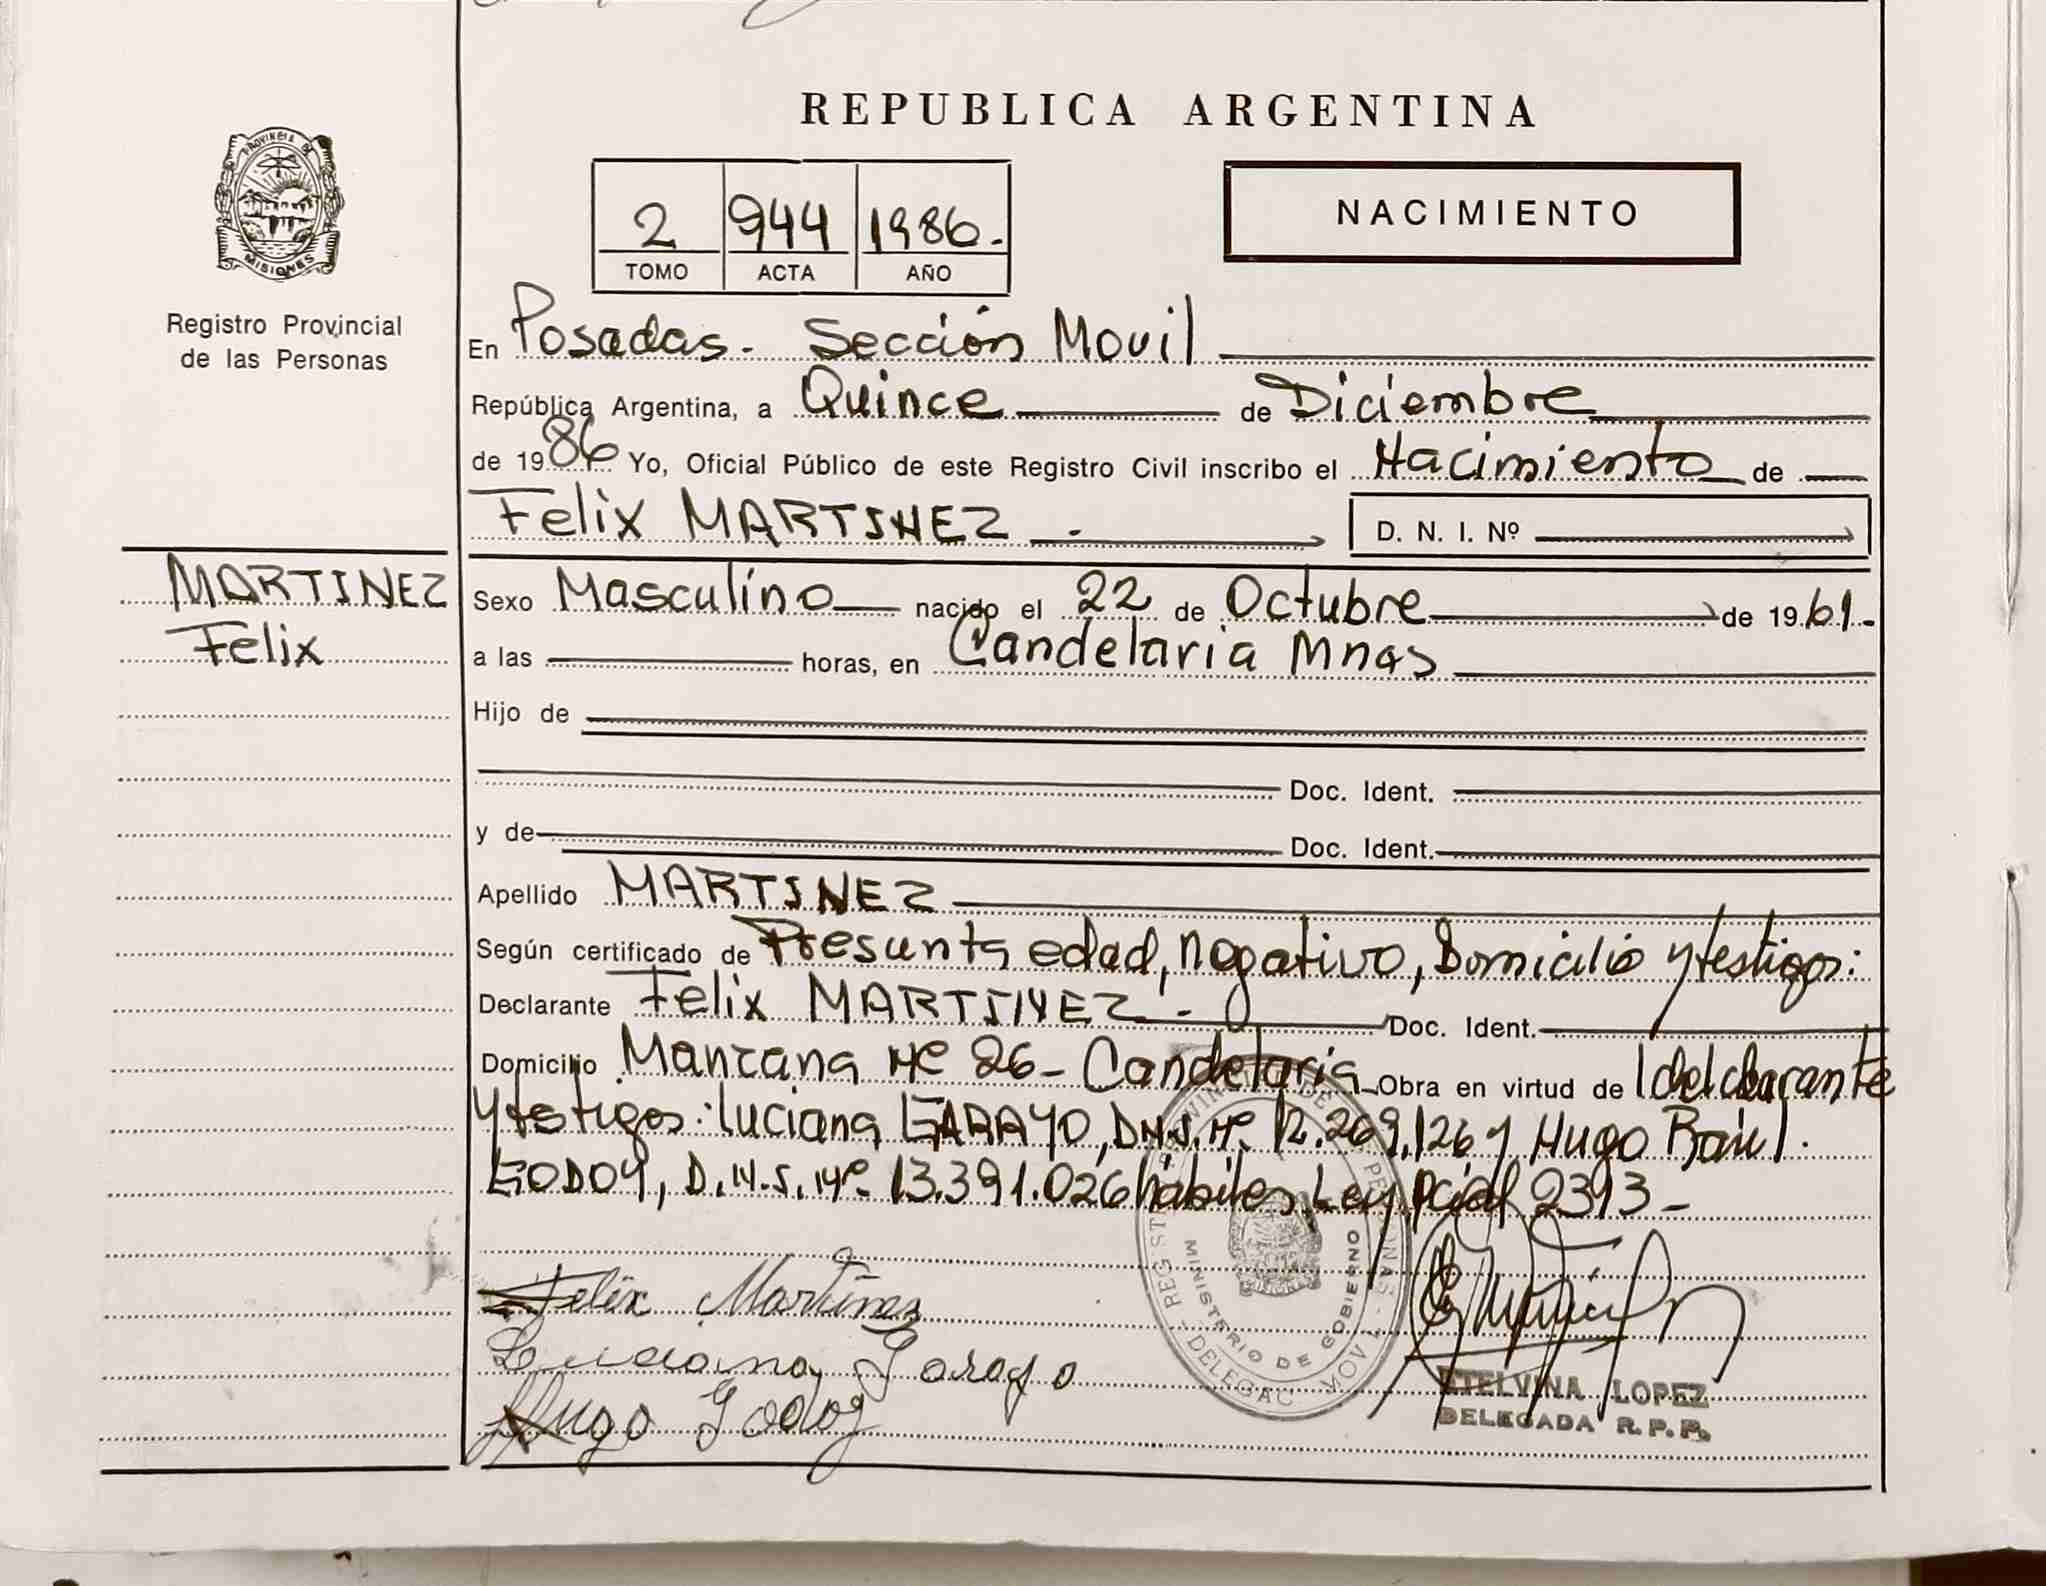 REPUBLICA ARGENTINA
PROVINCIA DE
MISIONES
Registro Provincial
de las Personas
2 944 1986.-
TOMO ACTA AÑO
NACIMIENTO
En Posadas. Sección Movil
República Argentina, a Quince de Diciembre
de 1986 Yo, Oficial Público de este Registro Civil inscribo el Nacimiento de
Felix MARTINEZ.- D. N. I. Nº
MARTINEZ
Felix
Sexo Masculino nacido el 22 de Octubre de 1961.-
a las horas, en Candelaria Mnes
Hijo de
Doc. Ident.
y de Doc. Ident.
Apellido MARTINEZ
Según certificado de Presunta edad, negativo, Domicilio y testigos:
Declarante Felix MARTINEZ.- Doc. Ident.
Domicilio Manzana Nº 26- Candelaria Obra en virtud de
y testigos: Luciana GARAYO, D.N.I. Nº 12.269.126 y Hugo Raúl
GODOY, D.N.I. Nº 13.391.026 hábiles Ley Pcial 2393-
Felix Martinez
Luciana Garayo
Hugo Godoy
MINISTERIO DE GOBIERNO
ETELVINA LOPEZ
DELEGADA R.P.P.